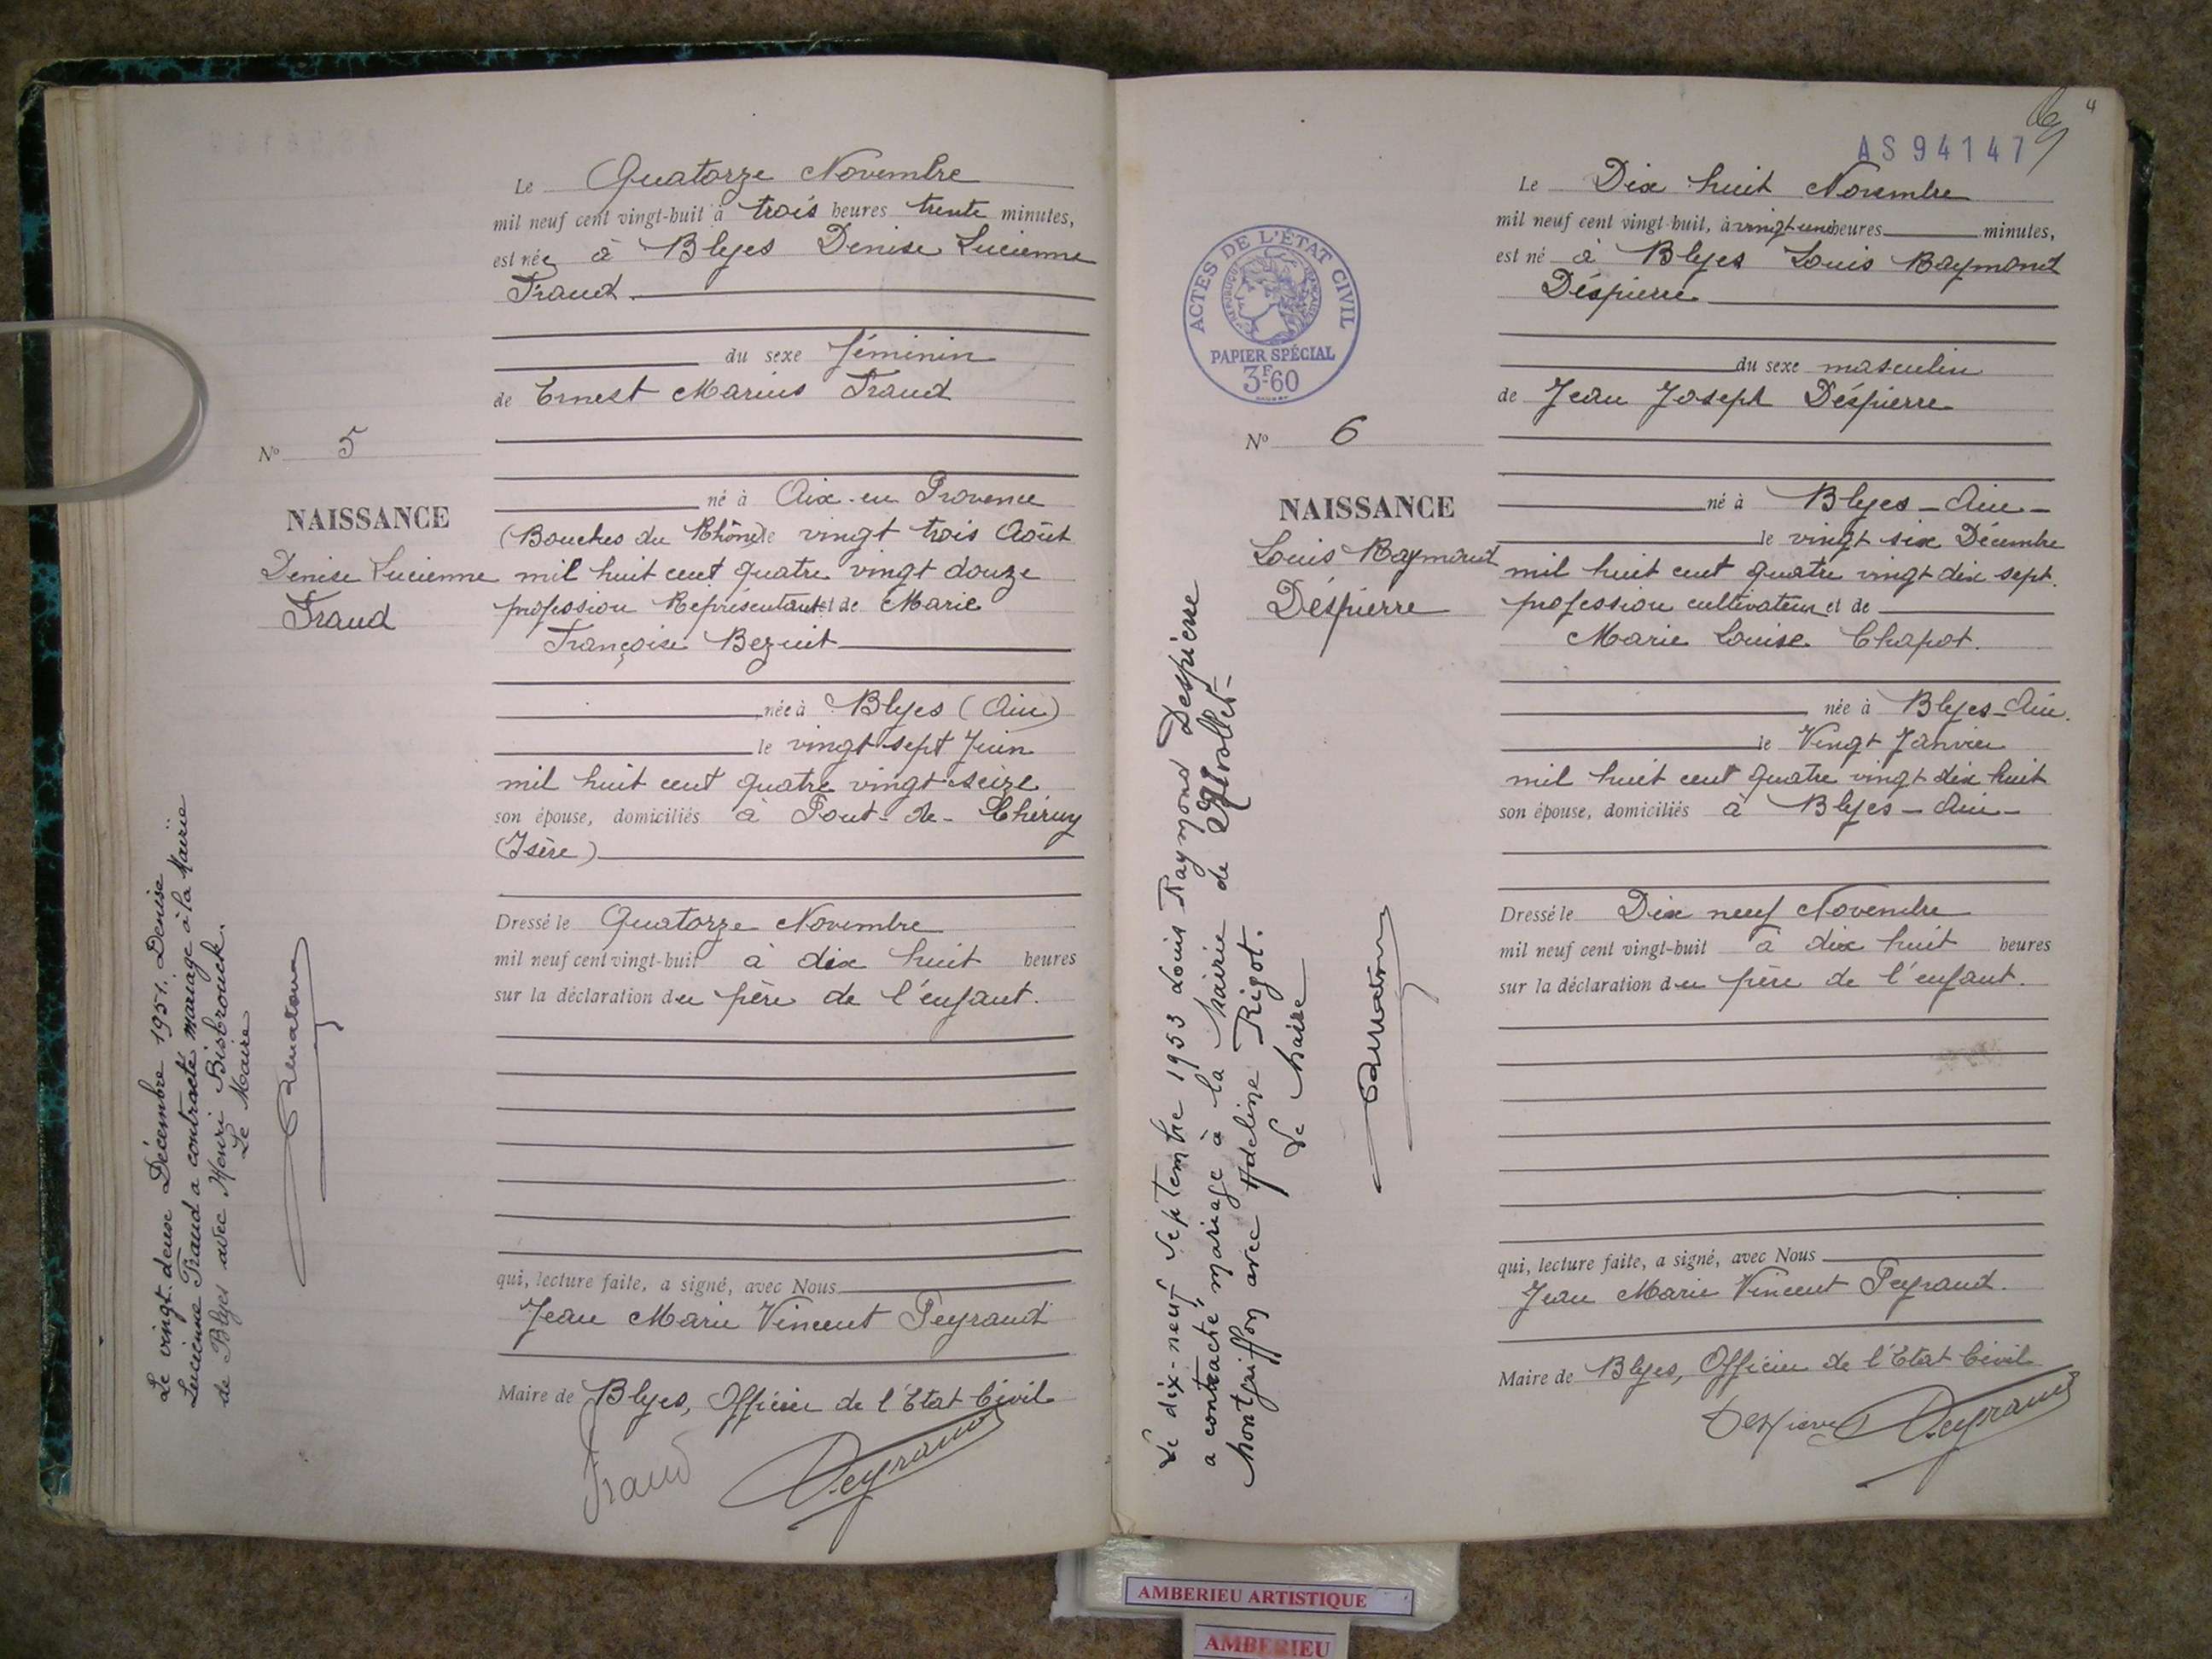 Le Quatorze Novembre
mil neuf cent vingt-huit à trois heures trente minutes,
est née à Blyes Denise Lucienne
Fraud
du sexe féminin
de Ernest Marius Fraud
N° 5
né à Aix-en Provence
(Bouches du Rhône) le vingt trois Août
NAISSANCE
Denise Lucienne
Fraud
mil huit cent quatre vingt douze
profession Représentant et de Marie
Françoise Bezuit
née à Blyes (Ain)
le vingt sept Juin
mil huit cent quatre vingt seize
son épouse, domiciliés à Pont-de-Chéruy
(Isère)
Dressé le Quatorze Novembre
mil neuf cent vingt-huit à dix huit heures
sur la déclaration du père de l'enfant.
qui, lecture faite, a signé, avec Nous
Jean Marie Vincent Peyraud
Maire de Blyes, Officier de l'Etat Civil
Fraud Peyraud
Le vingt-deux Décembre 1951. Denise
Lucienne Fraud a contracté mariage à la Mairie
de Blyes avec Henri Bisbrouck.
Le Maire
4
AS94147
ACTES DE L'ÉTAT CIVIL
RÉPUBLIQUE FRANÇAISE
PAPIER SPÉCIAL
3F60
Le Dix huit Novembre
mil neuf cent vingt-huit, à vingt une heures minutes,
est né à Blyes Louis Raymond
Déspierre
du sexe masculin
de Jean Joseph Déspierre
N° 6
né à Blyes - Ain -
le vingt six Décembre
NAISSANCE
Louis Raymond
Déspierre
mil huit cent quatre vingt dix sept.
profession cultivateur et de
Marie Louise Chapot.
née à Blyes-Ain.
le Vingt Janvier
mil huit cent quatre vingt dix huit
son épouse, domiciliés à Blyes - Ain -
Dressé le Dix neuf Novembre
mil neuf cent vingt-huit à dix huit heures
sur la déclaration du père de l'enfant.
qui, lecture faite, a signé, avec Nous
Jean Marie Vincent Peyraud.
Maire de Blyes, Officier de l'Etat Civil
Despierre Peyraud
Le dix-neuf Septembre 1953 Louis Raymond Despierre
a contracté mariage à la Mairie de
Montgriffon avec Adeline Rigot.
Le Maire
AMBERIEU ARTISTIQUE
AMBERIEU